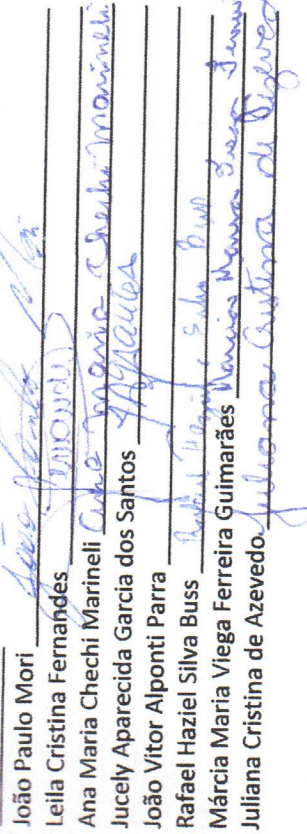 João Paulo Mori
Leila Cristina Fernandes
Ana Maria Chechi Marineli Ana Maria Chechi Marineli
Jucely Aparecida Garcia dos Santos
João Vitor Alponti Parra
Rafael Haziel Silva Buss Rafael Haziel Silva Buss
Márcia Maria Viega Ferreira Guimarães
Juliana Cristina de Azevedo Juliana Cristina de Azevedo